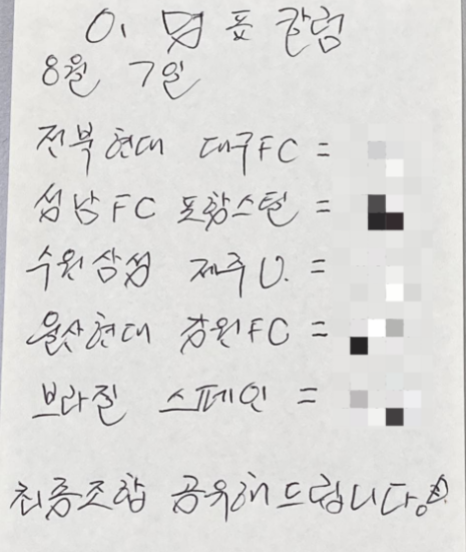 이영표 칼럼
8월 7일
전북현대 대구FC =
성남FC 포항스틸 =
수원삼성 제주U. =
울산현대 강원FC =
브라질 스페인 =
최종조합 공유해드립니다.